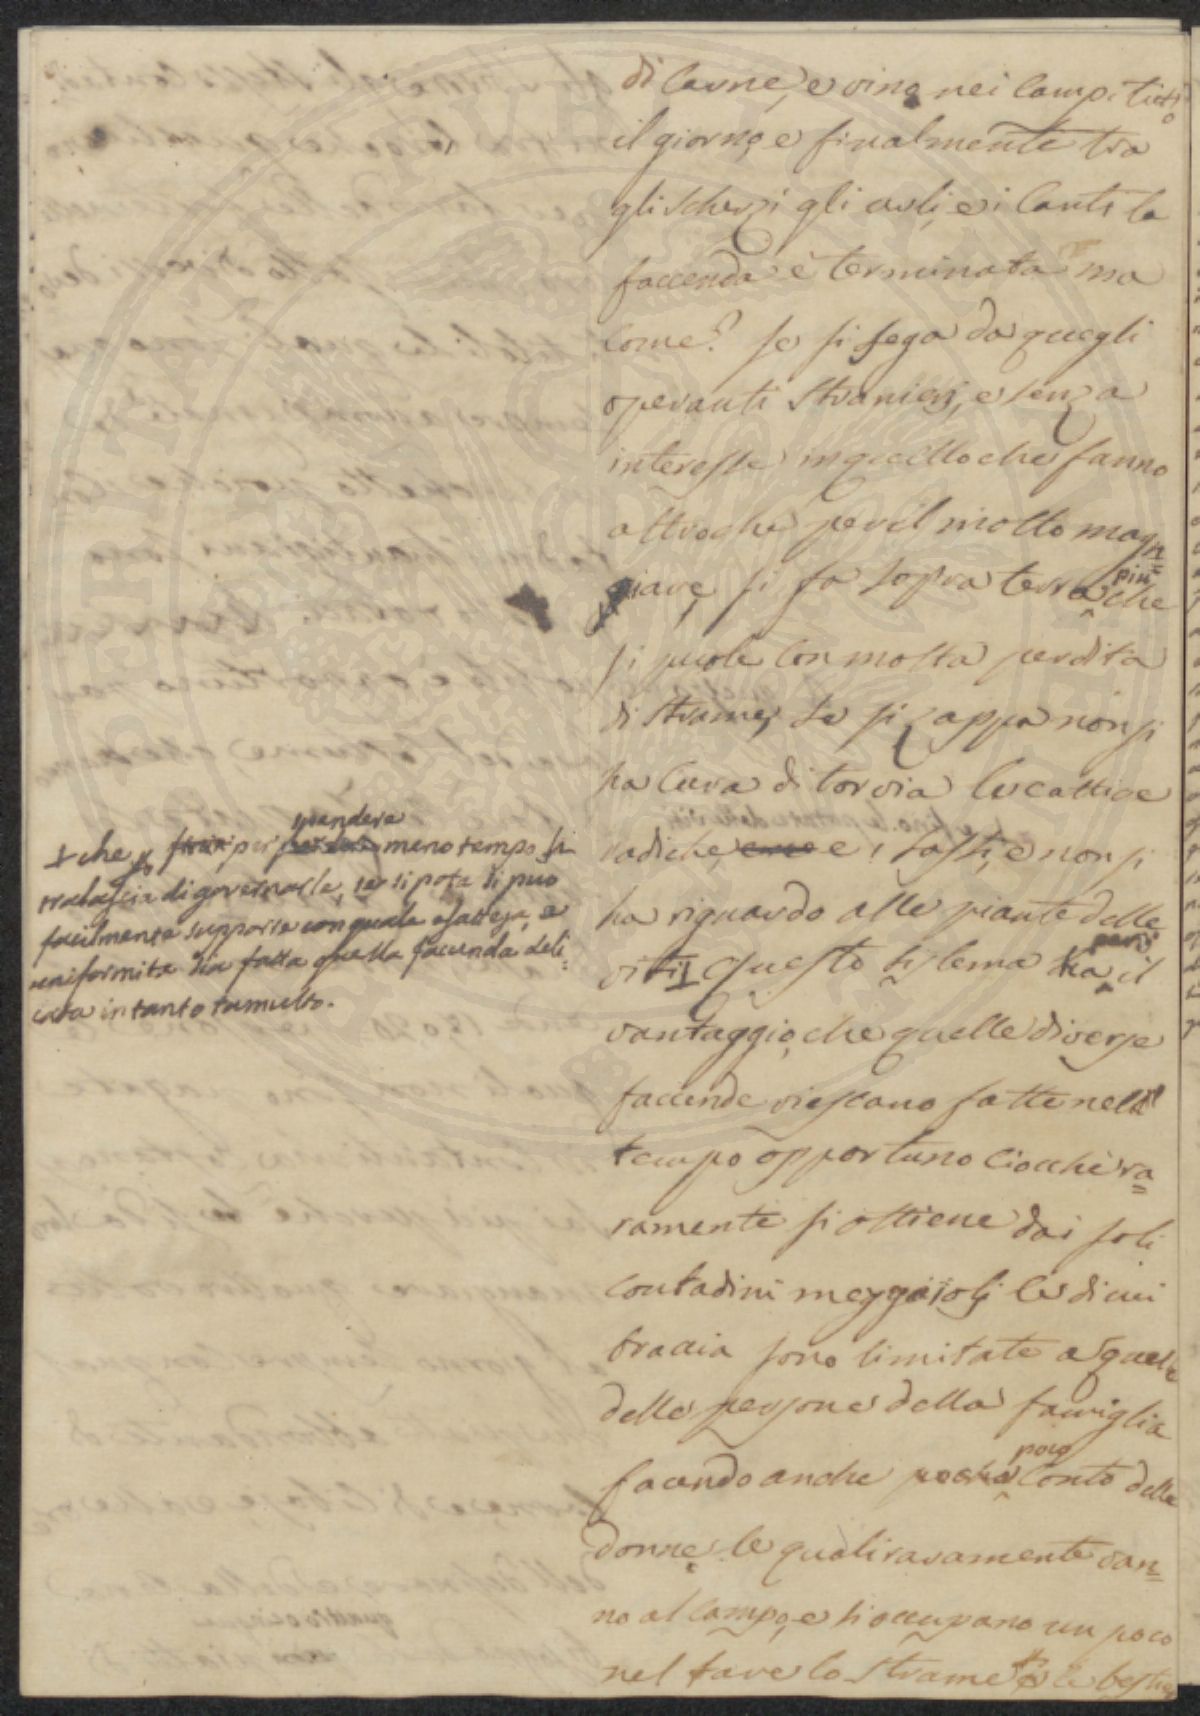 di carne, e vino nei campi tutto
il giorno, e finalmente tra
gli scherzi gli urli, e i canti la
faccenda è terminata ma
come? se si sega da quegli
operanti stranieri, e senza
interesse in quello che fanno
altro che per il molto man=
giare, si fa sopra terra più che
si puole con molta perdita
di strame, se si zappa non si
ha cura di tor via le cattive
radiche, e i sassi, e non si
ha riguardo alle piante delle
viti Questo sistema ha però il
vantaggio, che quelle diverse
faccende riescano fatte nel
tempo opportuno ciocchè ra=
ramente si ottiene dai soli
contadini mezzaioli le di cui
braccia sono limitate a quelle
delle persone della famiglia
facendo anche poco conto delle
donne, le quali raramente van=
no al campo, e si occupano un poco
nel fare lo strame le bestie
che per prendere meno tempo si
tralascia di governarle, se si pota si può
facilmente supporre con quale esattezza, e
uniformità sia fatta quella facenda deli=
cata in tanto tumulto.